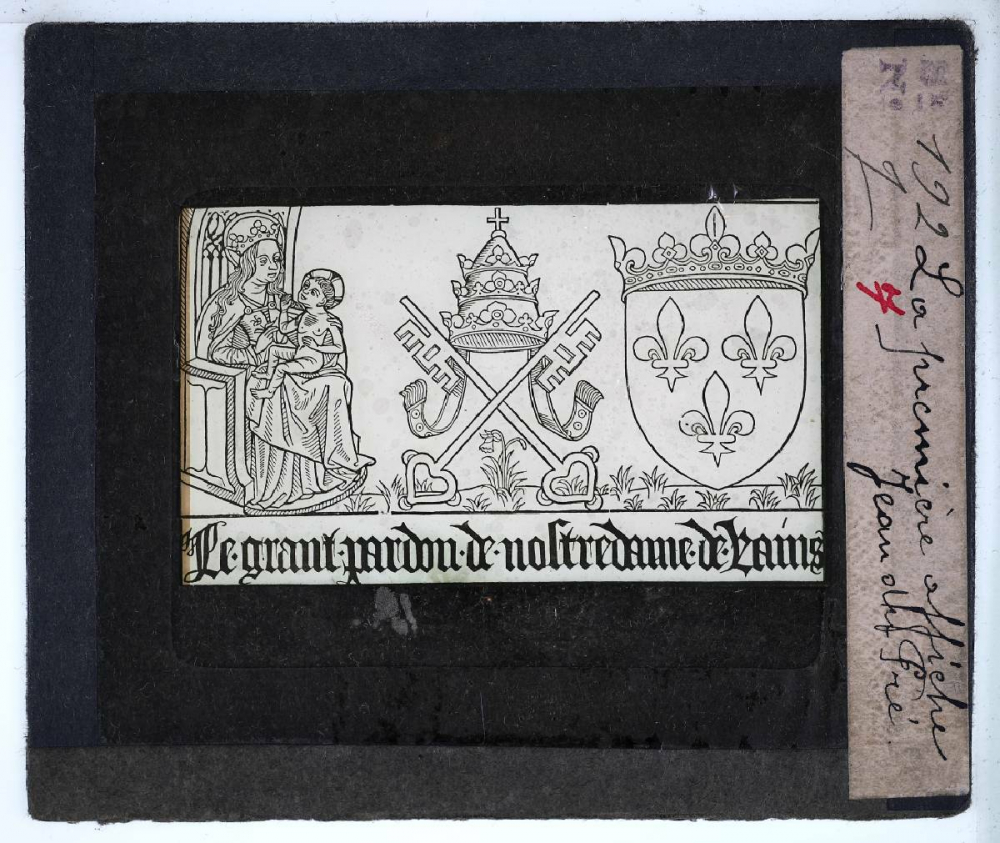 Le·grant·pardon·de·nostredame·de·Rains
192 La première affiche
Jean du Pré.